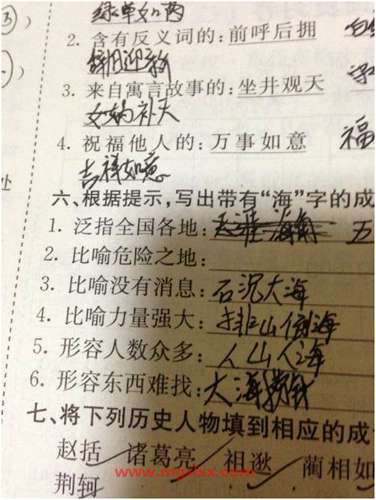 绿草如茵
2. 含有反义词的:前呼后拥
辞旧迎新
3. 来自寓言故事的:坐井观天
女娲补天
4. 祝福他人的:万事如意 福
吉祥如意
六、根据提示,写出带有“海”字的成
1. 泛指全国各地: 五
2. 比喻危险之地:
3. 比喻没有消息:石沉大海
4. 比喻力量强大:排山倒海
5. 形容人数众多:人山人海
6. 形容东西难找:大海捞针
七、将下列历史人物填到相应的成
赵括 诸葛亮 祖逖 蔺相如
荆轲